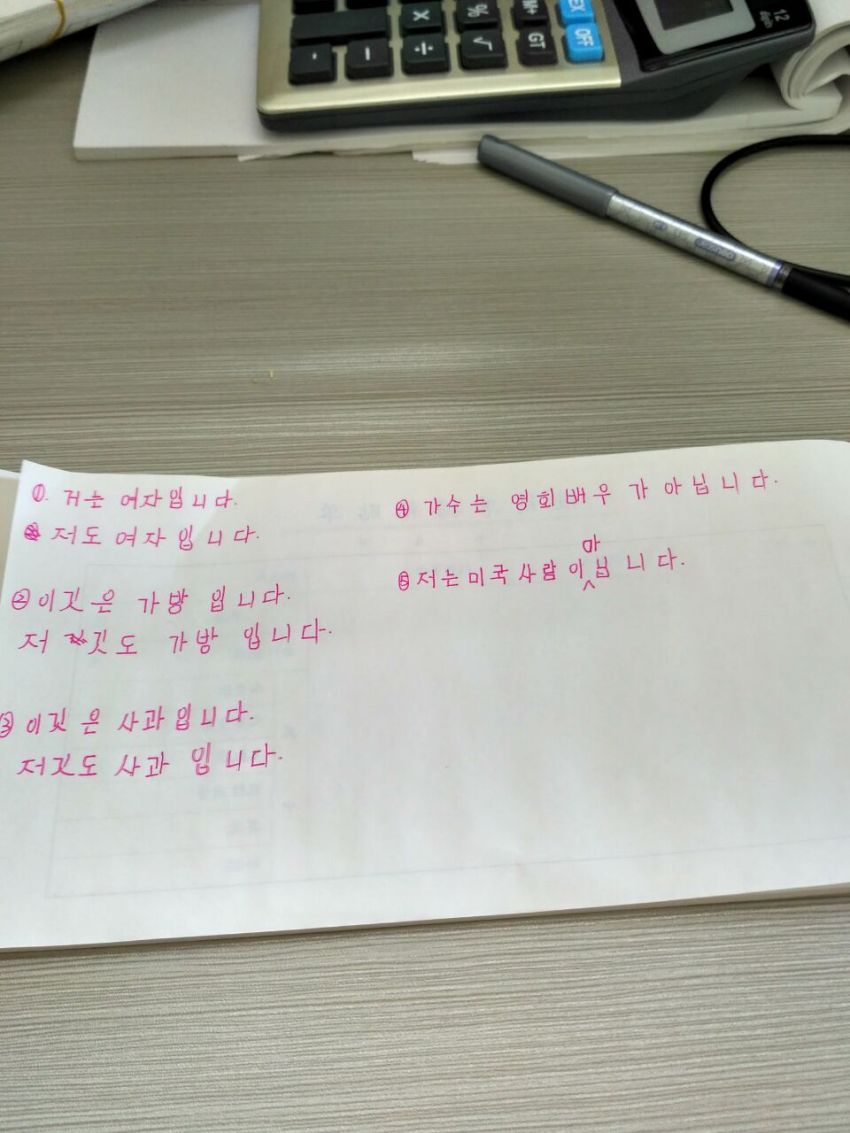 X % GT OFF
12
①. 거는 여자입니다.
저도 여자입니다.
②이것은 가방 입니다.
저것도 가방 입니다.
③이것은 사과입니다.
저것도 사과 입니다.
④ 가수는 영회배우 가 아닙니다.
⑤저는 미국 사람 이아닙니다.